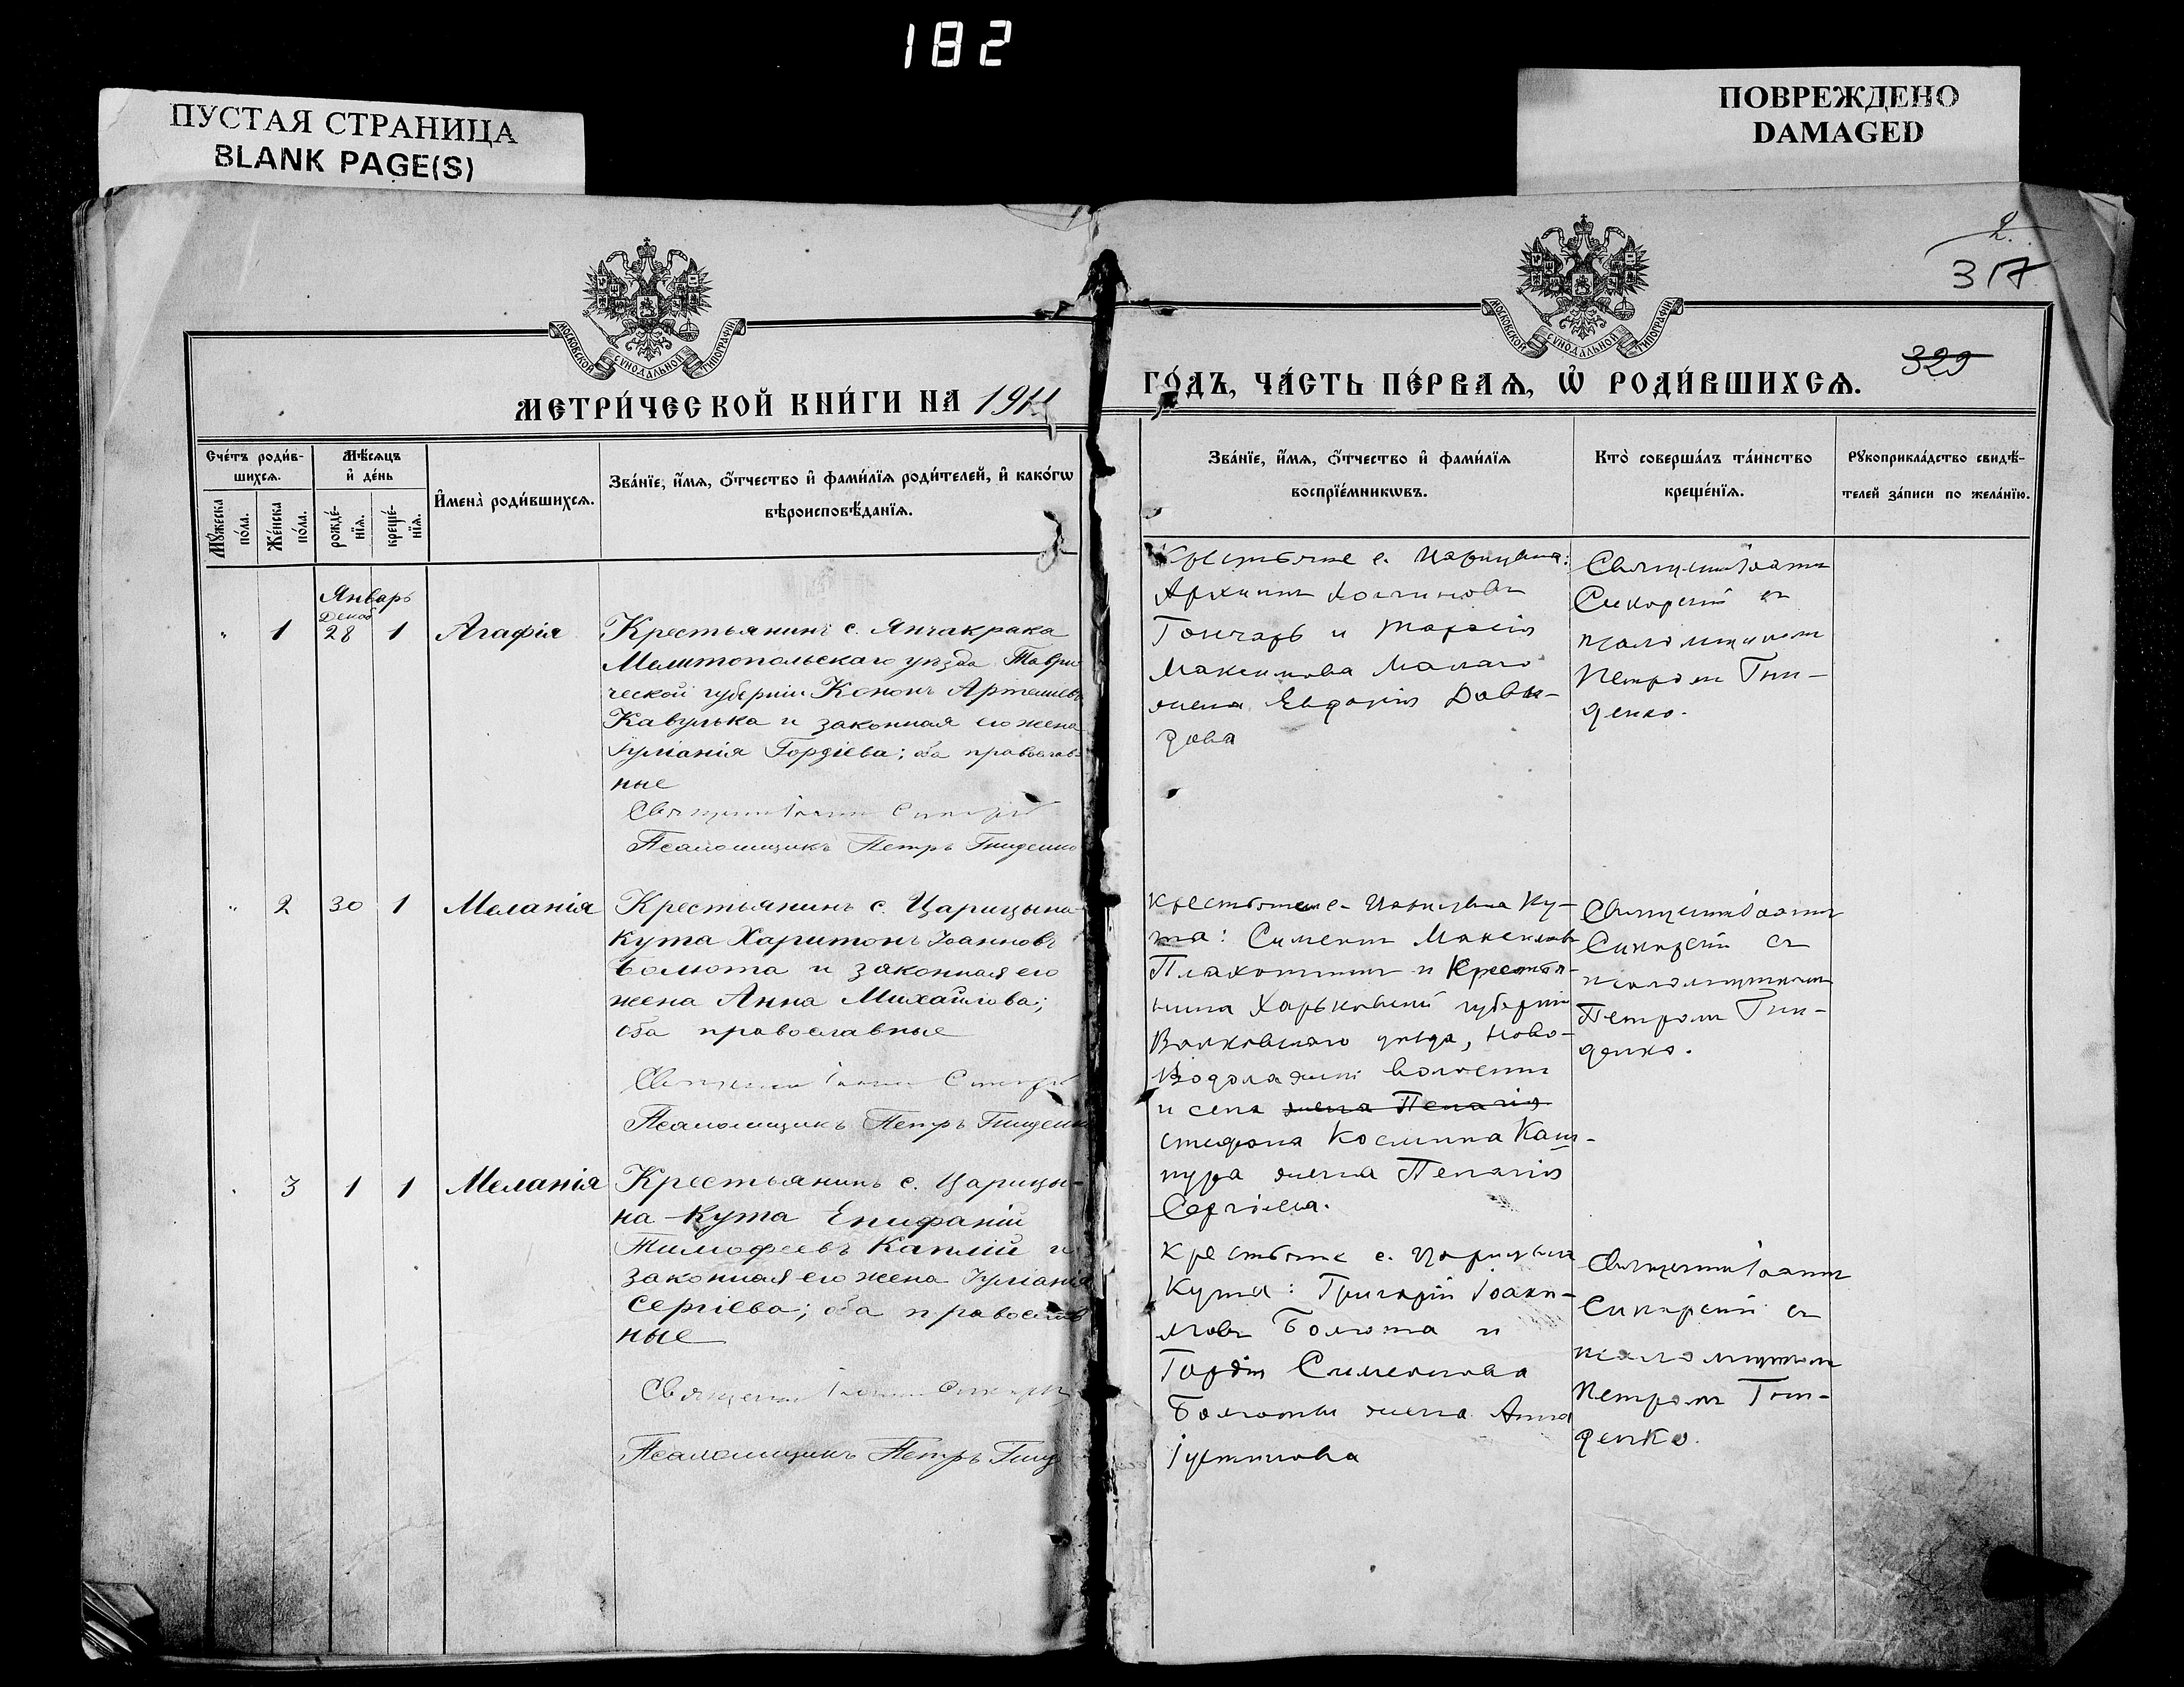 182
ПУСТАЯ СТРАНИЦА
BLANK PAGE(S)
ПОВРЕЖДЕНО
DAMAGED
2.
317
329
МОСКОВСКОЙ СѴНОДАЛЬНОЙ ТИПОГРАФІИ
МОСКОВСКОЙ СѴНОДАЛЬНОЙ ТИПОГРАФІИ
МЕТРИ́ЧЕСКОЙ КНИ́ГИ НА 1911
ГО́ДЪ, ЧА́СТЬ ПЕ́РВАѦ, Ѡ҆ РОДИ́ВШИХСѦ.
Сче́тъ роди́в-
шихсѧ.
Мꙋ́жеска
по́ла.
Же́нска
по́ла.
Мѣ́сѧцъ
и҆ де́нь
рожде́-
нїѧ.
креще́-
нїѧ.
И҆мена̀ роди́вшихсѧ.
Зва́нїе, и҆́мѧ, ѻ҆́тчество и҆ фами́лїѧ роди́телей, и҆ како́гѡ
вѣроисповѣ́данїѧ.
Зва́нїе, и҆́мѧ, ѻ҆́тчество и҆ фами́лїѧ
воспрїе́мникѡвъ.
Кто̀ соверша́лъ та́инство
креще́нїѧ.
Рꙋкоприкла́дство свидѣ́-
телей за́писи по жела́нїю.
Январь
Декаб
" 1 28 1 Агафія
Крестьянинъ с. Янчакрака
Мелитопольскаго уѣзда Таври
ческой губерніи Кононъ Артемьевъ
Кавулька и законная его жена
Іуліанія Гордіева; оба православ-
ные
Священникъ Іоаннъ Сикорскій
Псаломщикъ Петръ Гниденко
Крестьяне с. Царицына:
Архипъ
Гончаръ и
Максимова
жена Евдокія Давы-
дова
Священникъ Іоаннъ
Сикорскій съ
псаломщикомъ
Петромъ Гни-
денко.
" 2 30 1 Меланія
Крестьянинъ с. Царицына-
Кута Харитонъ Іоанновъ
Болюта и законная его
жена Анна Михайлова;
оба православные
Священникъ Іоаннъ Сикорскій
Псаломщикъ Петръ Гниденк
Крестьяне с. Царицына Ку-
та: Симеонъ Максимовъ
Плахотникъ и Крестья-
нина Харьковской губерніи
Валковскаго уѣзда, Ново-
Водолажской волости
и села жена Пелагія
Стефана Космина Каш-
пура жена Пелагія
Сергіева.
Священникъ Іоаннъ
Сикорскій съ
псаломщикомъ
Петромъ Гни-
денко.
" 3 1 1 Меланія
Крестьянинъ с. Царицы-
на-Кута Епифаній
Тимофеевъ Каплій и
законная его жена Іуліанія
Сергіева; оба православ
ные
Священникъ Іоаннъ Сикорскій
Псаломщикъ Петръ Гнид
Крестьяне с. Царицына
Кута: Григорій Іоаки-
мовъ Болюта и
Гордія Симеонова
Болюты жена Анна
Іустинова
Священникъ Іоаннъ
Сикорскій съ
псаломщикомъ
Петромъ Гни-
денко.